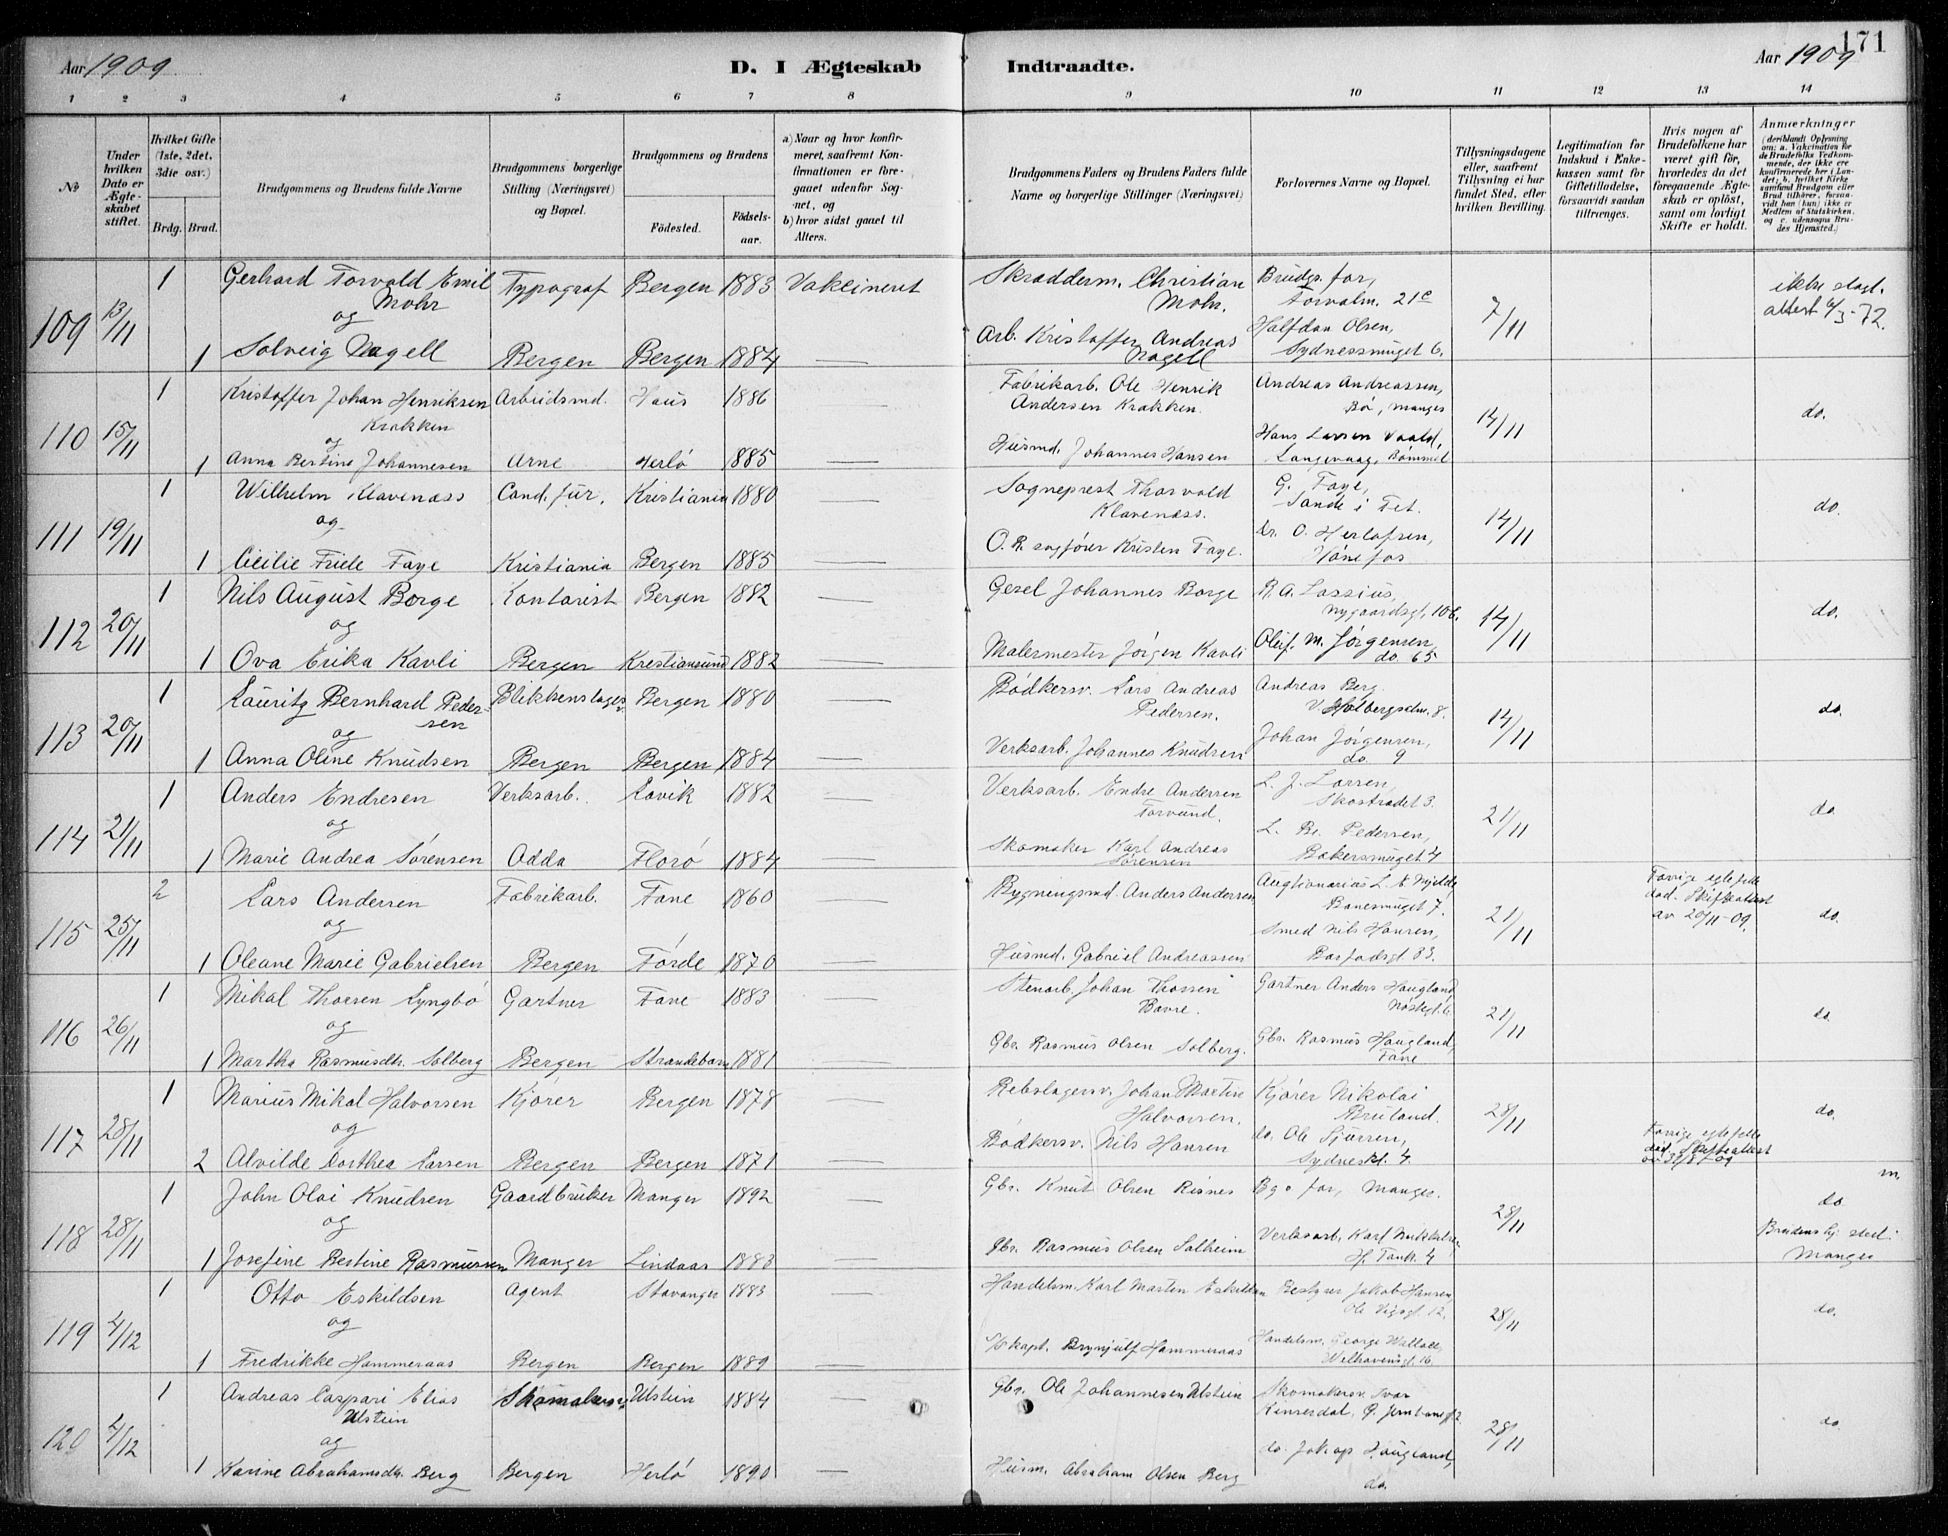 171
Aar 1909
D. I Ægteskab Indtraadte.
Aar 1909
1 2 3 4 5 6 7 8 9 10 11 12 13 14
№
Under hvilken Dato er Ægteskabet stiftet.
Hvilket Gifte (1ste, 2det, 3die osv.)
Brdg. Brud.
Brudgommens og Brudens fulde Navne
Brudgommens borgerlige Stilling (Næringsvei) og Bopæl.
Brudgommens og Brudens
Fødested.
Fødselsaar.
a) Naar og hvor konfirmeret, saafremt Konfirmationen er foregaaet udenfor Sognet, og
b) hvor sidst gaaet til Alters.
Brudgommens Faders og Brudens Faders fulde Navne og borgerlige Stillinger (Næringsvei)
Forlovernes Navne og Bopæl.
Tillysningsdagene eller, saafremt Tillysning ei har fundet Sted, efter hvilken Bevilling.
Legitimation for Indskud i Enkekassen samt for Giftetilladelse, forsaavidt saadan tiltrænges.
Hvis nogen af Brudefolkene har været gift før, hvorledes da det foregaaende Ægteskab er opløst, samt om lovligt Skifte er holdt.
Anmærkninger
(deriblandt Oplysning om: a. Vakcination for de Brudefolks Vedkommende, der ikke ere konfirmerede her i Landet; b. hvilket Kirkesamfund Brudgom eller Brud tilhører, forsaavidt han (hun) ikke er Medlem af Statskirken, og c. udensogns Brudes Hjemsted.)
109 13/11 1 Gerhard Torvald Emil Mohr Typograf Bergen 1883 Vakcineret Skrædderm. Christian Mohr. Brudgs. far, Torvalm. 21c 7/11 ikke slagt. attest 6/3-72.
og
1 Solveig Nagell Bergen Bergen 1884 — Arb. Kristoffer Andreas Nagell Halfdan Olsen, Sydnessmuget 6.
110 15/11 1 Kristoffer Johan Henriksen Krokken Arbeidsmd. Haus 1886 — Fabrikarb. Ole Henrik Andersen Krokken. Andreas Andreassen, Bø, Manger 14/11 do.
og
1 Anna Bertine Johannesen Arne Herlø 1885 — Husmd. Johannes Hansen Hans Larsen Vaald, Langevaag, Bømmel
111 19/11 1 Wilhelm Klavenæss Cand. jur. Kristiania 1880 — Sogneprest Thorvald Klavenæss. G. Faye, Sande i Fet. 14/11 do.
og
1 Cecilie Friele Faye Kristiania Bergen 1885 — O.R. sagfører Kristen Faye. Dr. O. Herlofsen, Hønefos
112 20/11 1 Nils August Borge Kontorist Bergen 1882 — Gesel Johannes Borge R. A. Lassius, Nygaardsgt. 106. 14/11 do.
og
1 Ova Erika Kavli Bergen Kristiansund 1882 — Malermester Jørgen Kavli Oluf. M. Jørgensen do. 65
113 20/11 1 Lauritz Bernhard Pedersen Blikkenslagersv. Bergen 1880 — Bødkersv. Lars Andreas Pedersen. Andreas Berg. V. Holbergsalm. 8. 14/11 do.
og
1 Anna Oline Knudsen Bergen Bergen 1884 — Verksarb. Johannes Knudsen Johan Jørgensen, do. 9
114 21/11 1 Anders Endresen Verksarb. Lavik 1882 — Verksarb. Endre Andersen Torvund. L. J. Larsen, Skostrædet 3. 21/11 do
og
1 Marie Andrea Sørensen Odda Florø 1884 — Skomaker Karl Andreas Sørensen L. Br. Pedersen, Bakersmuget 4
115 25/11 2 Lars Andersen Fabrikarb. Fane 1860 — Bygningsmd. Anders Andersen Augtionarius L. A. Mjelde Banesmuget 7. 21/11 Forrige egtefelle død. Skifteattest av 20/11-09. do.
og
1 Oleane Marie Gabrielsen Bergen Førde 1870 — Husmd. Gabriel Andreassen Smed Nils Hansen, Barfodsgt 33.
116 26/11 1 Mikal Thorsen Lyngbø Gartner Fane 1883 — Stenarb. Johan Thorsen Gartner Anders Haugland Nøstegt. 6. 21/11 do.
og
1 Martha Rasmusdtr. Solberg Bergen Strandebarm 1881 — Gbr. Rasmus Olsen Solberg. Gbr. Rasmus Haugland, Fane
117 28/11 1 Marius Mikal Halvorsen Kjører Bergen 1878 — Rebslagersv. Johan Martin Halvorsen. Kjører Nikolai Bruland. 28/11 do.
og
2 Alvilde Dorthea Larsen Bergen Bergen 1871 — Bødkersv. Nils Hansen do. Ole Sjursen, Sydneskl. 4. Forrige egtefelle død. Skifteattest
118 28/11 1 John Olai Knudsen Gaardbruker Manger 1892 — Gbr. Knut Olsen Risnes Bgs far, Manger. 28/11 m. do. Brudens hj.sted: Manger
og
1 Josefine Bertine Rasmussen Manger Lindaas 1883 — Gbr. Rasmus Olsen Solheim Verksarb. Karl Mikkelsen H. Tank. 4
119 4/12 1 Otto Eskildsen Agent Stavanger 1883 — Handelsm. Karl Martin Eskildsen Bestyrer Jakob Hansen Ole Vigsgt. 12. 28/11 do.
og
1 Fredrikke Hammeraas Bergen Bergen 1889 — S/kapt. Brynjulf Hammeraas Handelsm. George Wallace, Welhavensgt. 16.
120 4/12 1 Andreas Caspari Elias Utstein Skomakersv. Utstein 1884 — Gbr. Ole Johannesen Utstein Skomakersv. Ivar Kinserdal, 28/11 do
og
1 Karine Abrahamsdtr. Berg Bergen Herlø 1890 — Husm. Abraham Olsen Berg do. Jakop Haugland, do.